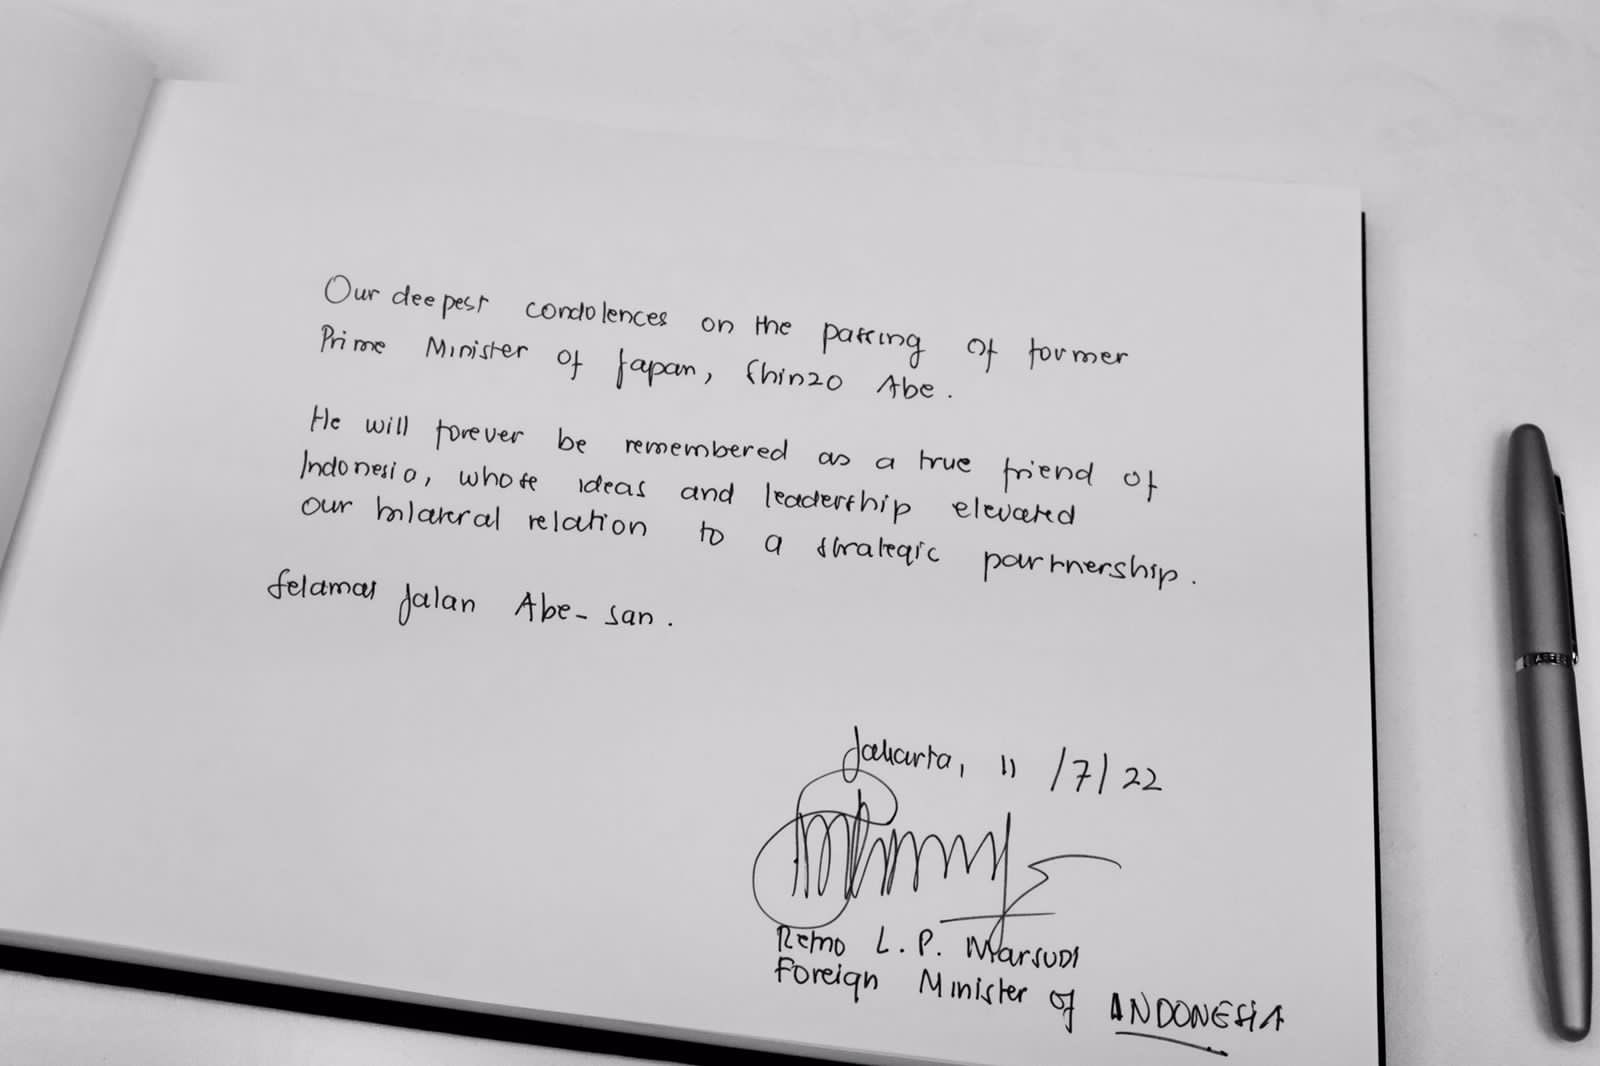 Our deepest condolences on the passing of former
Prime Minister of Japan, Shinzo Abe.
He will forever be remembered as a true friend of
Indonesia, whose ideas and leadership elevated
our bilateral relation to a strategic partnership.
Selamat jalan Abe-san.
Jakarta, 11/7/22
Retno L.P. Marsudi
Foreign Minister of INDONESIA